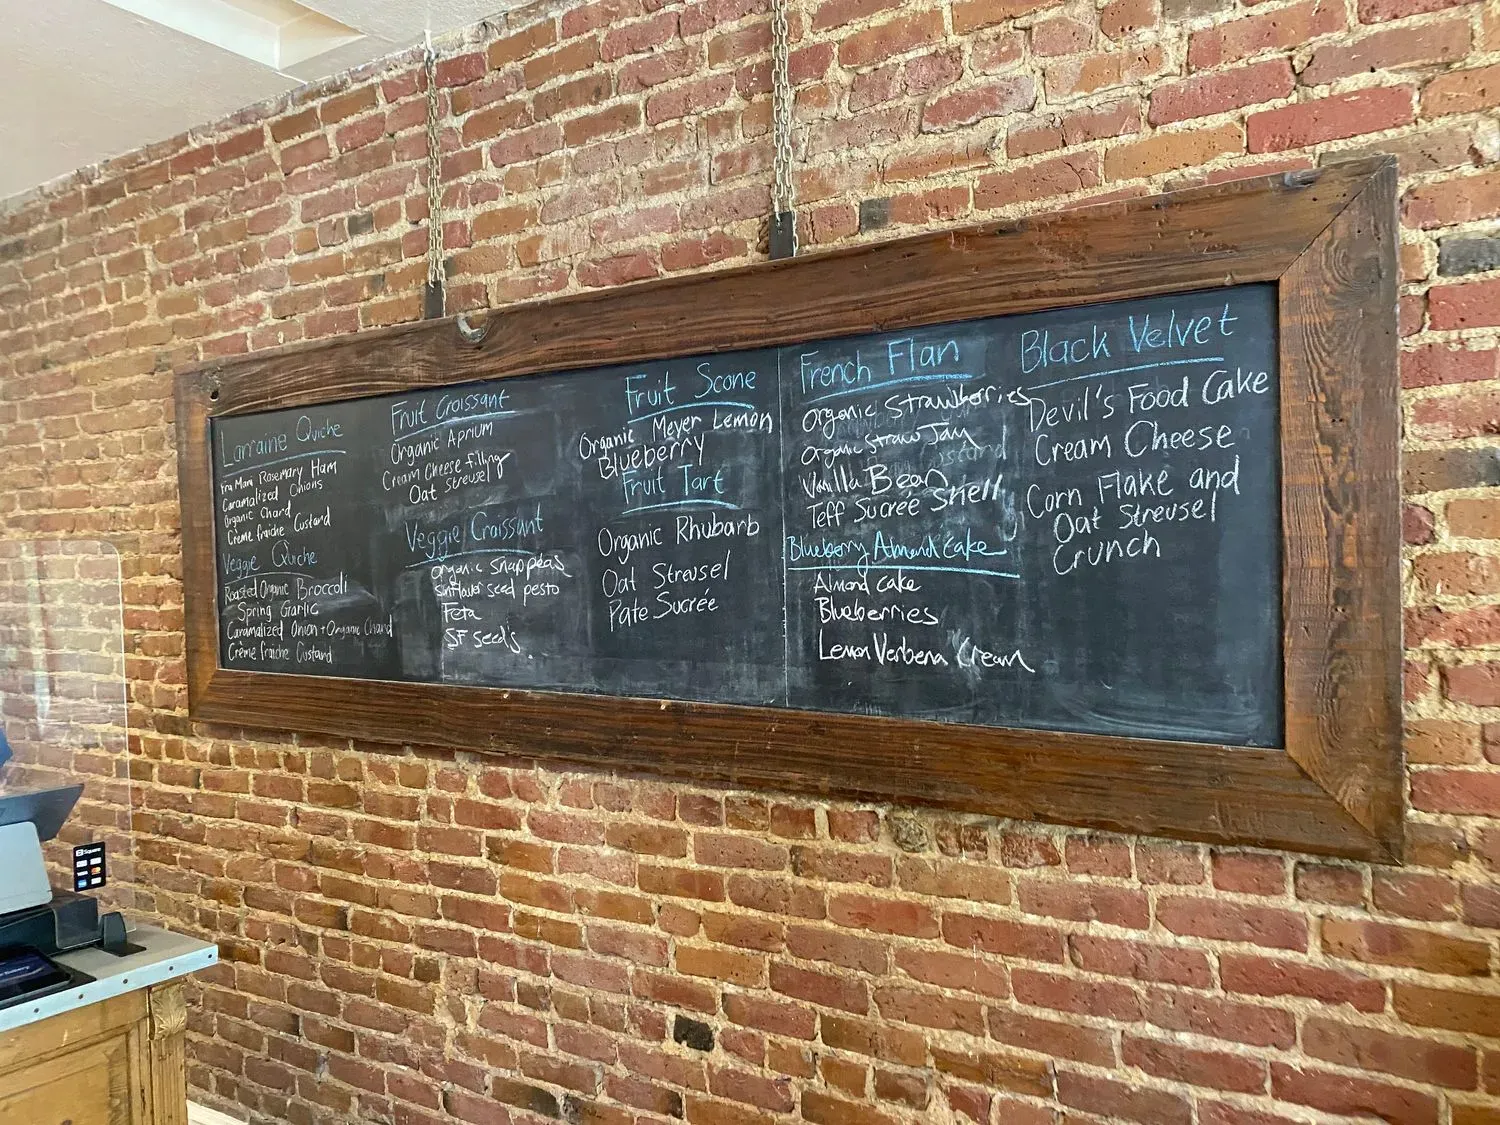 Larraine Quiche
Fra Mani Rosemary Ham
Caramalized Onions
Organic Chard
Crème fraîche Custard
Veggie Quiche
Roasted Organic Broccoli
Spring Garlic
Caramalized Onion + Organic Chard
Crème fraîche Custard
Fruit Croissant
Organic Aprium
Cream Cheese filling
Oat Streusel
Veggie Croissant
Organic Snap peas
Sunflower seed pesto
Feta
SF seeds
Fruit Scone
Organic Meyer Lemon
Blueberry
Fruit Tart
Organic Rhubarb
Oat Streusel
Pate Sucrée
French Flan
Organic Strawberries
Organic Straw Jam
Vanilla Bean
Teff Sucrée Shell
Blueberry Almond Cake
Almond cake
Blueberries
Lemon Verbena Cream
Black Velvet
Devil's Food Cake
Cream Cheese
Corn Flake and
Oat Streusel
Crunch
Square